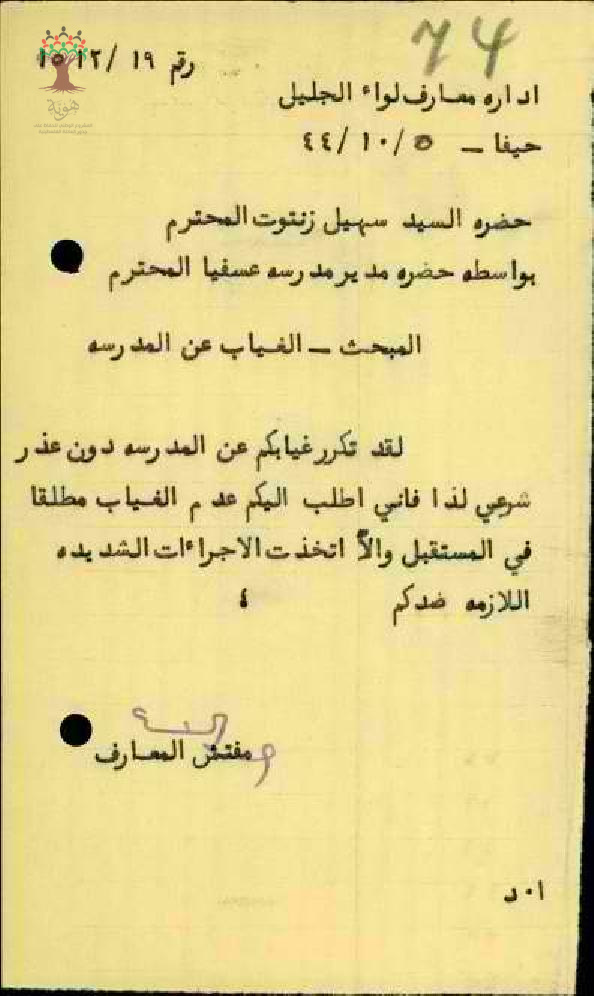 74
رقم ١٩ /١٥١٢
هوية
اداره معارف لواء الجليل
حيفا — ٥ /١٠ /٤٤
حضره السيد سهيل زنتوت المحترم
بواسطه حضره مدير مدرسه عسفيا المحترم
المبحث — الغياب عن المدرسه
لقد تكرر غيابكم عن المدرسه دون عذر
شرعي لذا فاني اطلب اليكم عدم الغياب مطلقا
في المستقبل والاّ اتخذت الاجراءات الشديده
اللازمه ضدكم ٤
مفتش المعارف
ا٠د